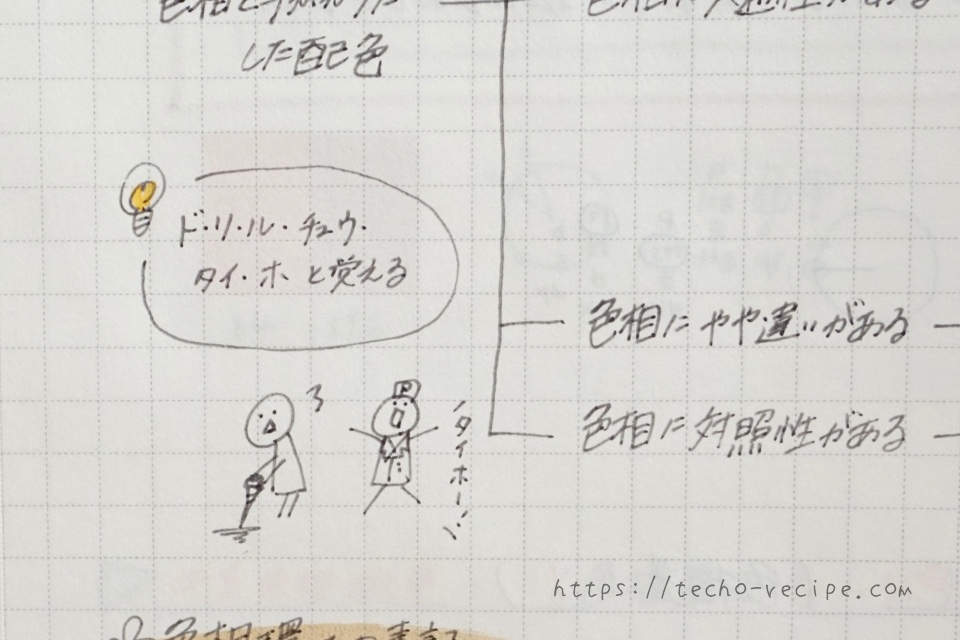 した配色
色相に共通性がある
ド・リ・ル・チュウ・
タイ・ホ と覚える
色相に やや違いがある
色相に 対照性がある
P
タイホー!
https://techo-recipe.com